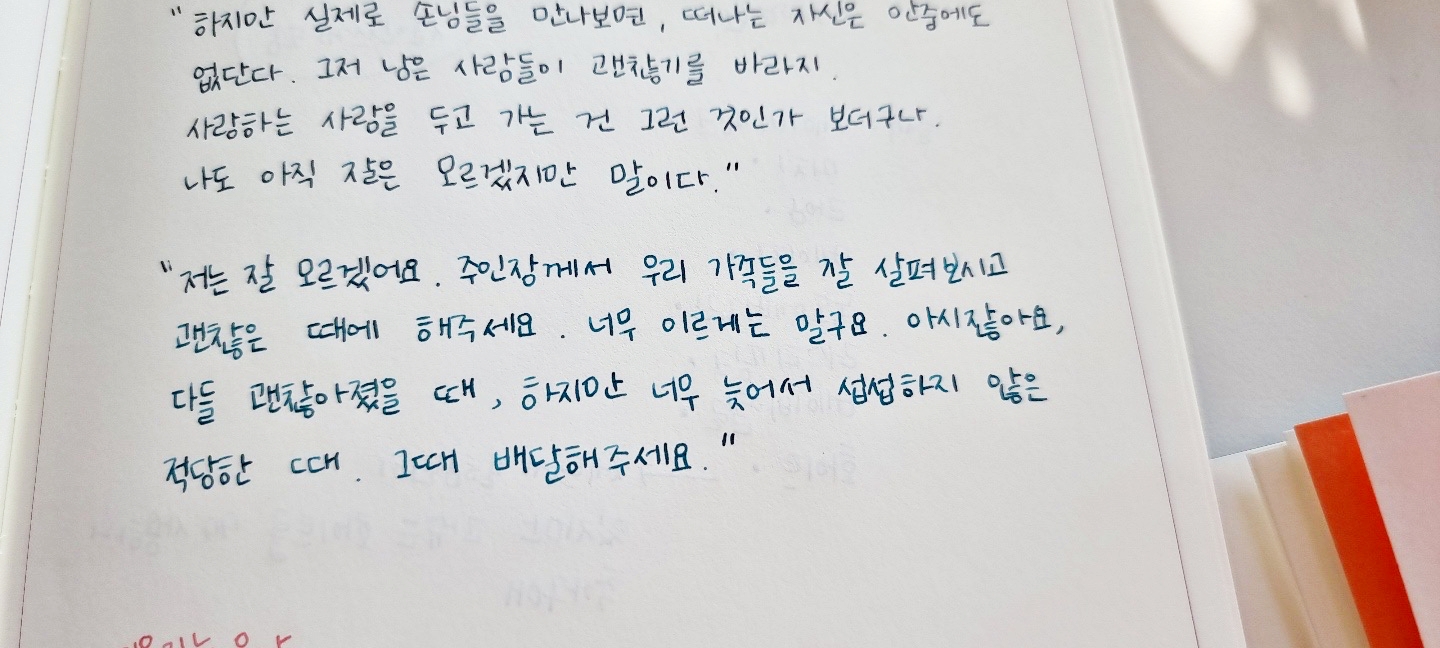 "하지만 실제로 손님들을 만나보면, 떠나는 자신은 안중에도
없단다. 그저 남은 사람들이 괜찮기를 바라지.
사랑하는 사람을 두고 가는 건 그런 것인가 보더구나.
나도 아직 잘은 모르겠지만 말이다."
"저는 잘 모르겠어요. 주인장께서 우리 가족들을 잘 살펴보시고
괜찮은 때에 해주세요. 너무 이르게는 말구요. 아시잖아요,
다들 괜찮아졌을 때, 하지만 너무 늦어서 섭섭하지 않은
적당한 때. 그때 배달해주세요."